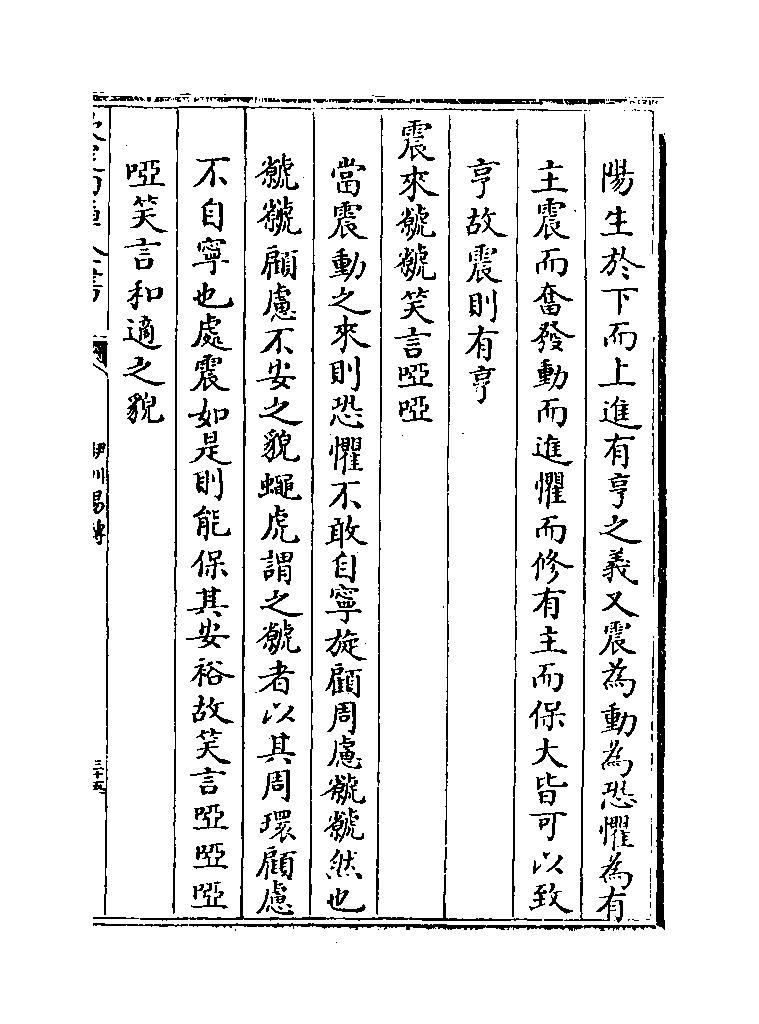 陽生於下而上進有亨之義又震為動為恐懼為有
主震而奮發動而進懼而修有主而保大皆可以致
亨故震則有亨
震來虩虩笑言啞啞
當震動之來則恐懼不敢自寧旋顧周慮虩虩然也
虩虩顧慮不安之貌蠅虎謂之虩者以其周環顧慮
不自寧也處震如是則能保其安裕故笑言啞啞啞
啞笑言和適之貌
伊川易傳
三十五